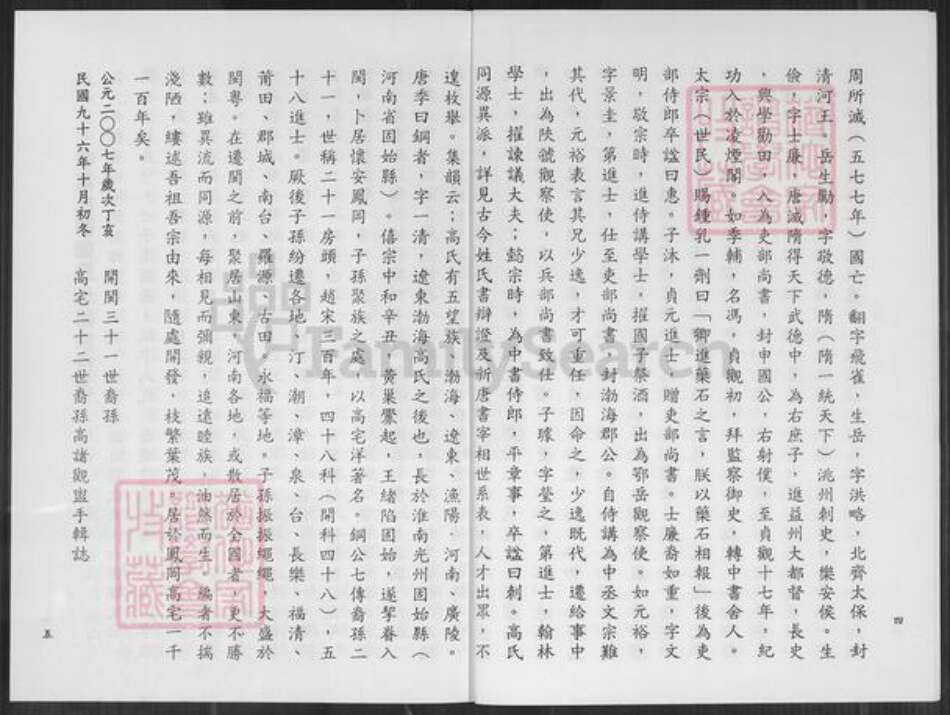 周所滅（五七七年）國亡。翻字飛雀，生岳，字洪略，北齊太保，封
清河王，岳生勱，字敬德，隋（隋一統天下）洮州刺史，樂安侯。生
儉，字士廉，唐滅隋得天下武德中，為右庶子，進益州大都督，長史
，興學勸田，入為吏部尚書，封申國公，右射僕，至貞觀十七年，紀
功入於凌煙閣。如季輔，名馮，貞觀初，拜監察御史，轉中書舍人。
太宗（世民）賜鍾乳一劑曰「卿進藥石之言，朕以藥石相報」後為吏
部侍郎卒諡曰惠。子沐，貞元進士，贈吏部尚書。士廉裔如重，字文
明，敬宗時，進侍講學士，擢國子祭酒，出為鄂岳觀察使。如元裕，
字景圭，第進士，仕至吏部尚書，封渤海郡公。自侍講為中丞文宗難
其代，元裕表言其兄少逸，才可重任，因命之，少逸既代，遷給事中
，出為陜虢觀察使，以兵部尚書致仕。子璩，字瑩之，第進士，翰林
學士，擢諫議大夫；懿宗時，為中書侍郎，平章事，卒諡曰刺。高氏
同源異派，詳見古今姓氏書辯證及新唐書宰相世系表，人才出眾，不
遑枚舉。集韻云；高氏有五望族，渤海、遼東、漁陽、河南、廣陵。
唐季曰鋼者，字一清，遼東渤海高氏之後也，長於淮南光州固始縣（
河南省固始縣）。僖宗中和辛丑，黃巢釁起，王緒陷固始，遂挈眷入
閩，卜居懷安鳳岡，子孫聚族之處，以高宅洋著名。鋼公七傳裔孫二
十一，世稱二十一房頭，趙宋三百年，四十八科（開科四十八），五
十八進士。厥後子孫紛遷各地，汀、潮、漳、泉、台、長樂、福清、
莆田、郡城、南台、羅源、古田、永福等地。子孫振振繩繩，大盛於
閩粵。在遷閩之前，聚居山東、河南各地，或散居於全國者，更不勝
數；雖異流而同源，每相見而彌親，追遠睦族，油然而生，編者不揣
淺陋，縷述吾祖吾宗由來，隨處開發，枝繁葉茂。居於鳳岡高宅一千
一百年矣。
公元二〇〇七年歲次丁亥　開閩三十一世裔孫
民國九十六年十月初冬　高宅二十二世裔孫高諸觀盥手輯誌
四
五
FamilySearch